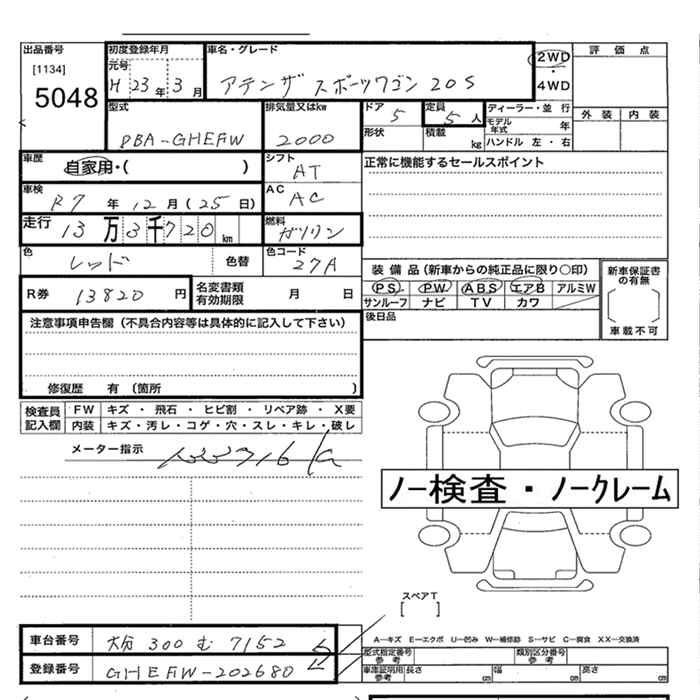 出品番号 初度登録年月 車名・グレード 評価点
[1134] 元号
5048 H 23 年 3 月 アテンザ スポーツワゴン 20S 2WD・4WD
型式 排気量又はkw ドア 定員 ディーラー・並 行 外装 内装
DBA-GHEFW 2000 5 5人 モデル年式 年
形状 積載 kg ハンドル 左・右
車歴 自家用・( ) シフト AT 正常に機能するセールスポイント
車検 R7 年 12 月 (25 日) AC AC
走行 13 万 3 千 720 km 燃料 ガソリン
色 レッド 色替 色コード 27A
装備品(新車からの純正品に限り○印) 新車保証書の有無
R券 13820 円 名変書類有効期限 月 日 PS PW ABS エアB アルミW
サンルーフ ナビ TV カワ
後日品 車載不可
注意事項申告欄(不具合内容等は具体的に記入して下さい)
修復歴 有(箇所 )
検査員記入欄 FW キズ・飛石・ヒビ割・リペア跡・X要
内装 キズ・汚レ・コゲ・穴・スレ・キレ・破レ
メーター指示
ノー検査・ノークレーム
スペアT
[ ]
A−キズ E−エクボ U−凹み W−補修跡 S−サビ C−腐食 XX−交換済
車台番号 大分 300 む 7152 型式指定番号 参考 類別区分番号 参考
登録番号 GHEFW-202680 車庫証明用 参考 長さ cm 幅 cm 高さ cm